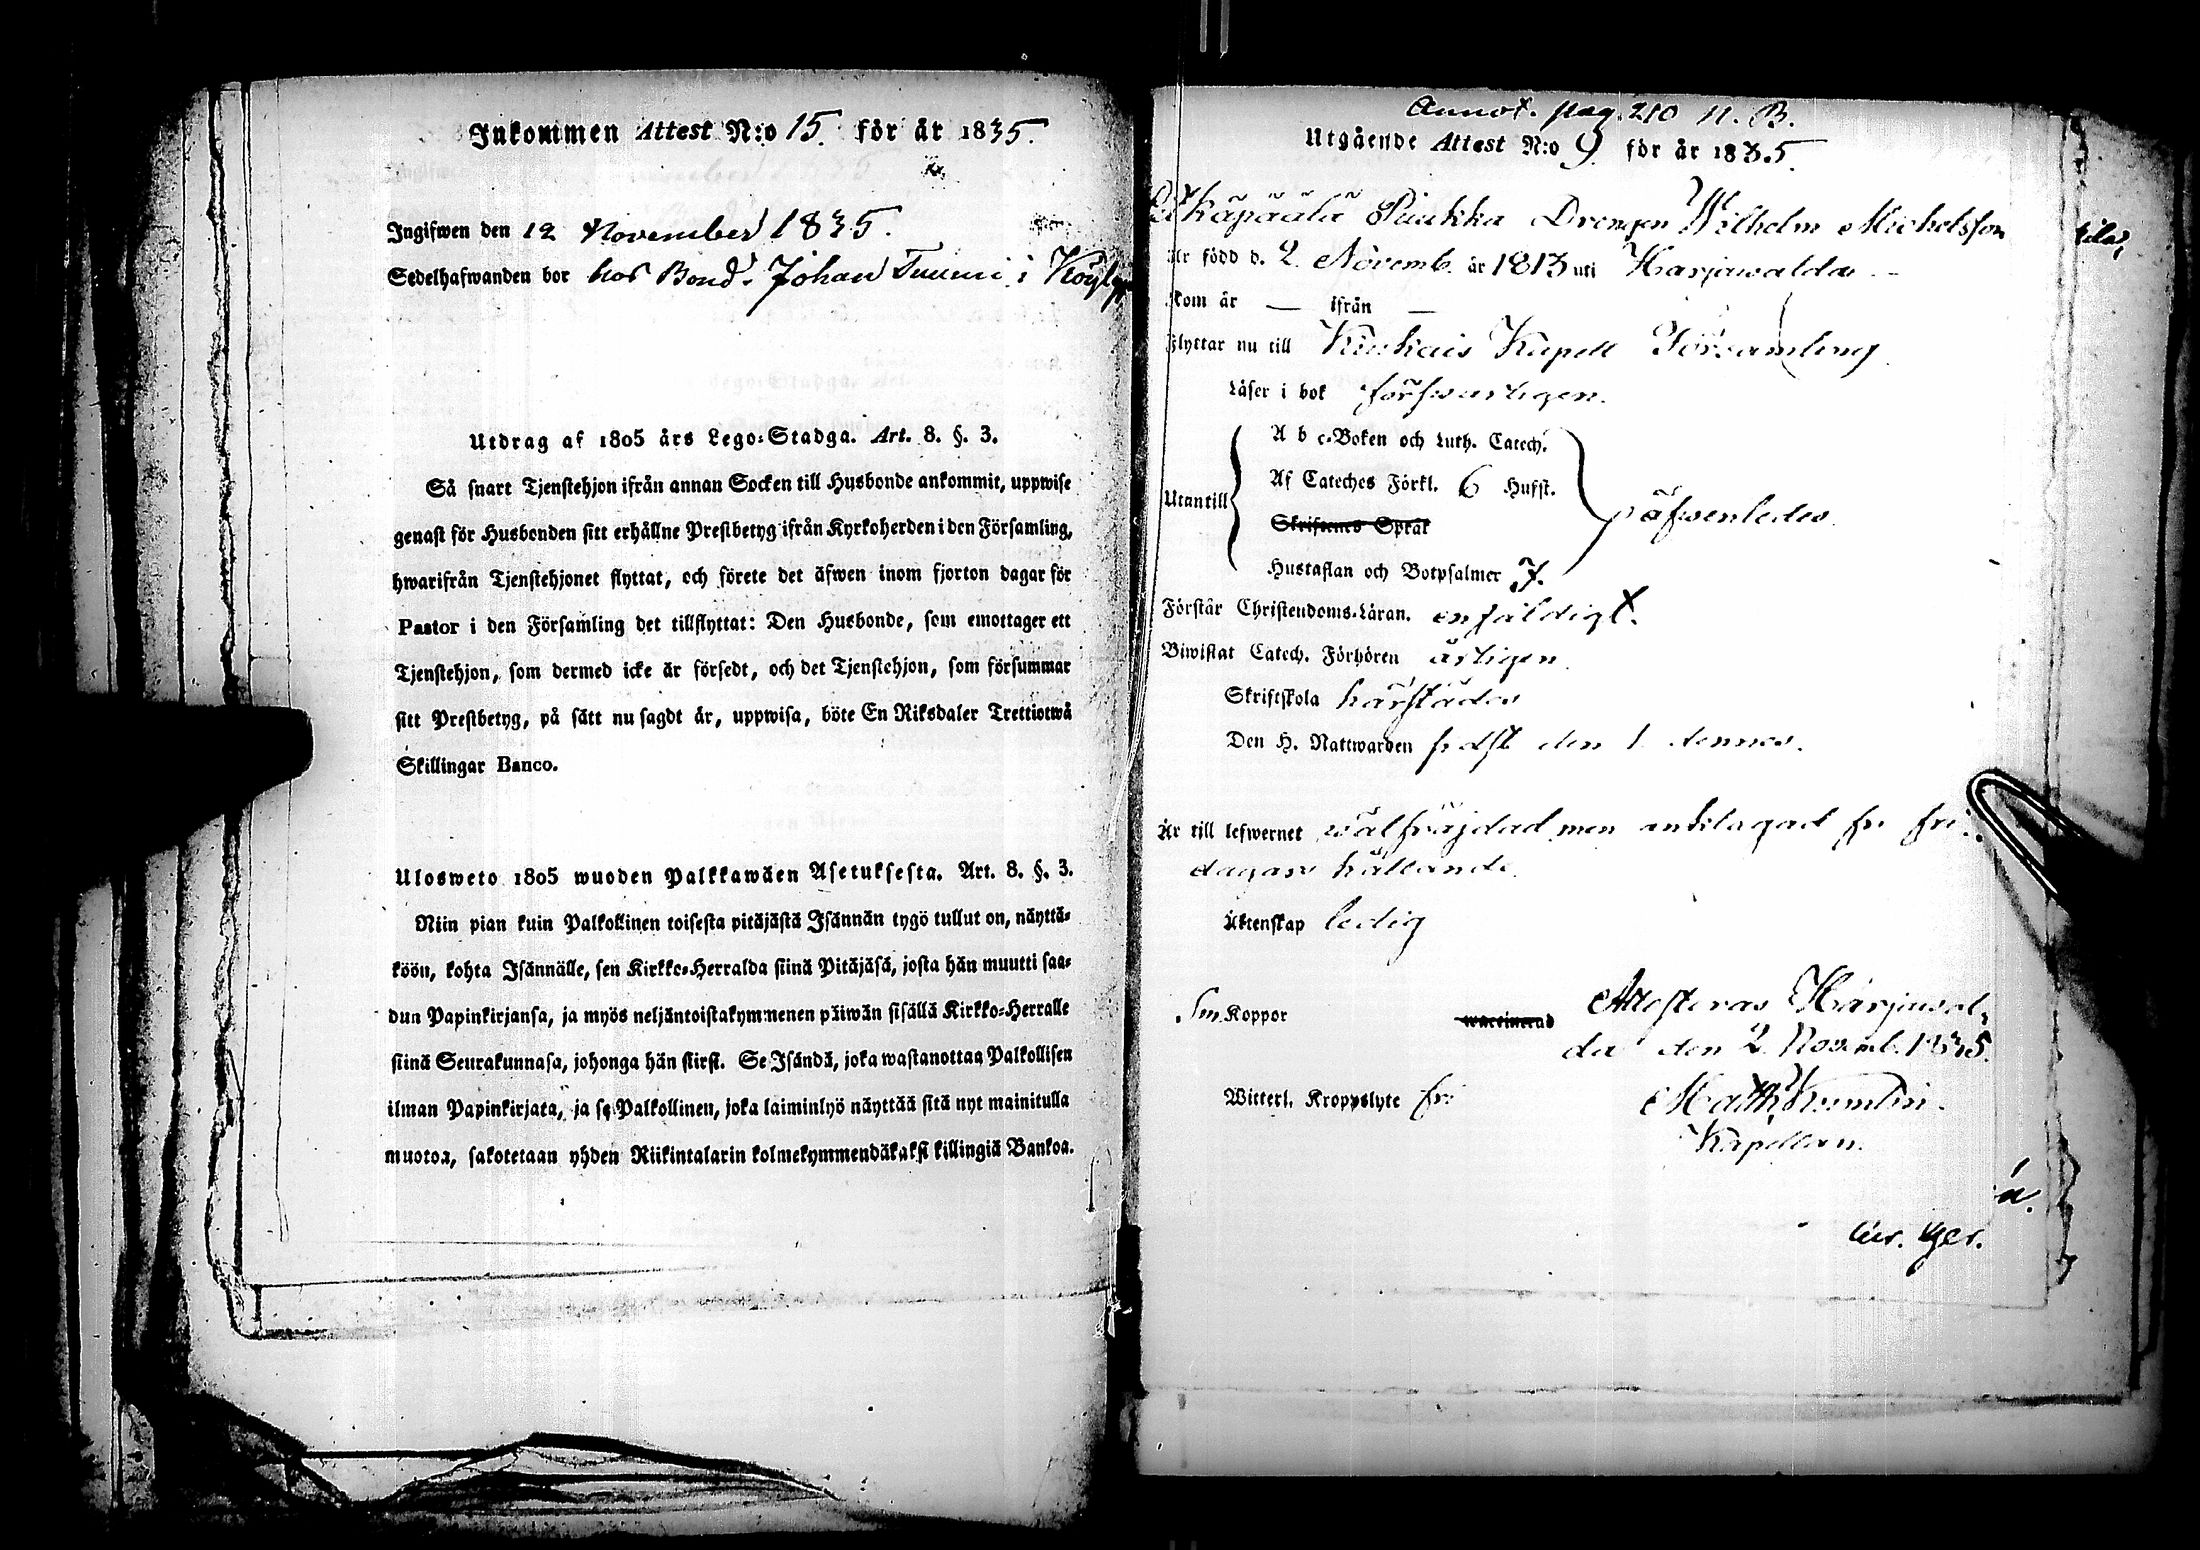 Inkommen Attest N:o 15. för år 1835.
Ingifwen den 12 November 1835.
Sedelhafwanden bor hos Bond. Johan Tuumi i
Utdrag af 1805 års Lego-Stadga. Art. 8. §. 3.
Så snart Tjenstehjon ifrån annan Socken till Husbonde ankommit, uppwise
genast för Husbonden sitt erhållne Prestbetyg ifrån Kyrkoherden i den Församling,
hwarifrån Tjenstehjonet flyttat, och förete det äfwen inom fjorton dagar för
Pastor i den Församling det tillflyttat: Den Husbonde, som emottager ett
Tjenstehjon, som dermed icke är försedt, och det Tjenstehjon, som försummar
sitt Prestbetyg, på sätt nu sagdt är, uppwisa, böte En Riksdaler Trettiotwå
Skillingar Banco.
Ulosweto 1805 wuoden Palkkawäen Asetuksesta. Art. 8. §. 3.
Niin pian kuin Palkollinen toisesta pitäjästä Isännän tygö tullut on, näyttä-
köön, kohta Isännälle, sen Kirkko-Herralda siinä Pitäjäsä, josta hän muutti saa-
dun Papinkirjansa, ja myös neljäntoistakymmenen päiwän sisällä Kirkko-Herralle
siinä Seurakunnasa, johonga hän siirsi. Se Isändä, joka wastanottaa Palkollisen
ilman Papinkirjata, ja se Palkollinen, joka laiminlyö näyttää sitä nyt mainitulla
muotoa, sakotetaan yhden Riikintalarin kolmekymmendäkaksi killingiä Bankoa.
Annot. pag. 210 n. B.
Utgående Attest N:o 9 för år 1835.
Puukka Drengen Wilhelm Michelsson
Är född d. 2 Novemb. år 1813 uti Harjawalda
Kom år — ifrån —
Flyttar nu till Kiukais Kapell Församling
Läser i bok försvarligen.
A b c-Boken och Luth. Catech.
Af Cateches Förkl. 6 Hufst.
Utantill päfwenledes
Skriftenes Språk
Hustaflan och Botpsalmer 7.
Förstår Christendoms-Läran. enfäldigt.
Biwistat Catech. Förhören årligen.
Skriftskola härstädes
Den H. Nattwarden sidst den 1 dennes.
Är till lefwernet wälfräjdad men anklagad för fri-
dagars hållande.
Äktenskap ledig
Sm. Koppor waccinerad
Attesteras Harjawal-
da den 2 Novemb. 1835.
Witterl. Kroppslyte fri
Kapellan.